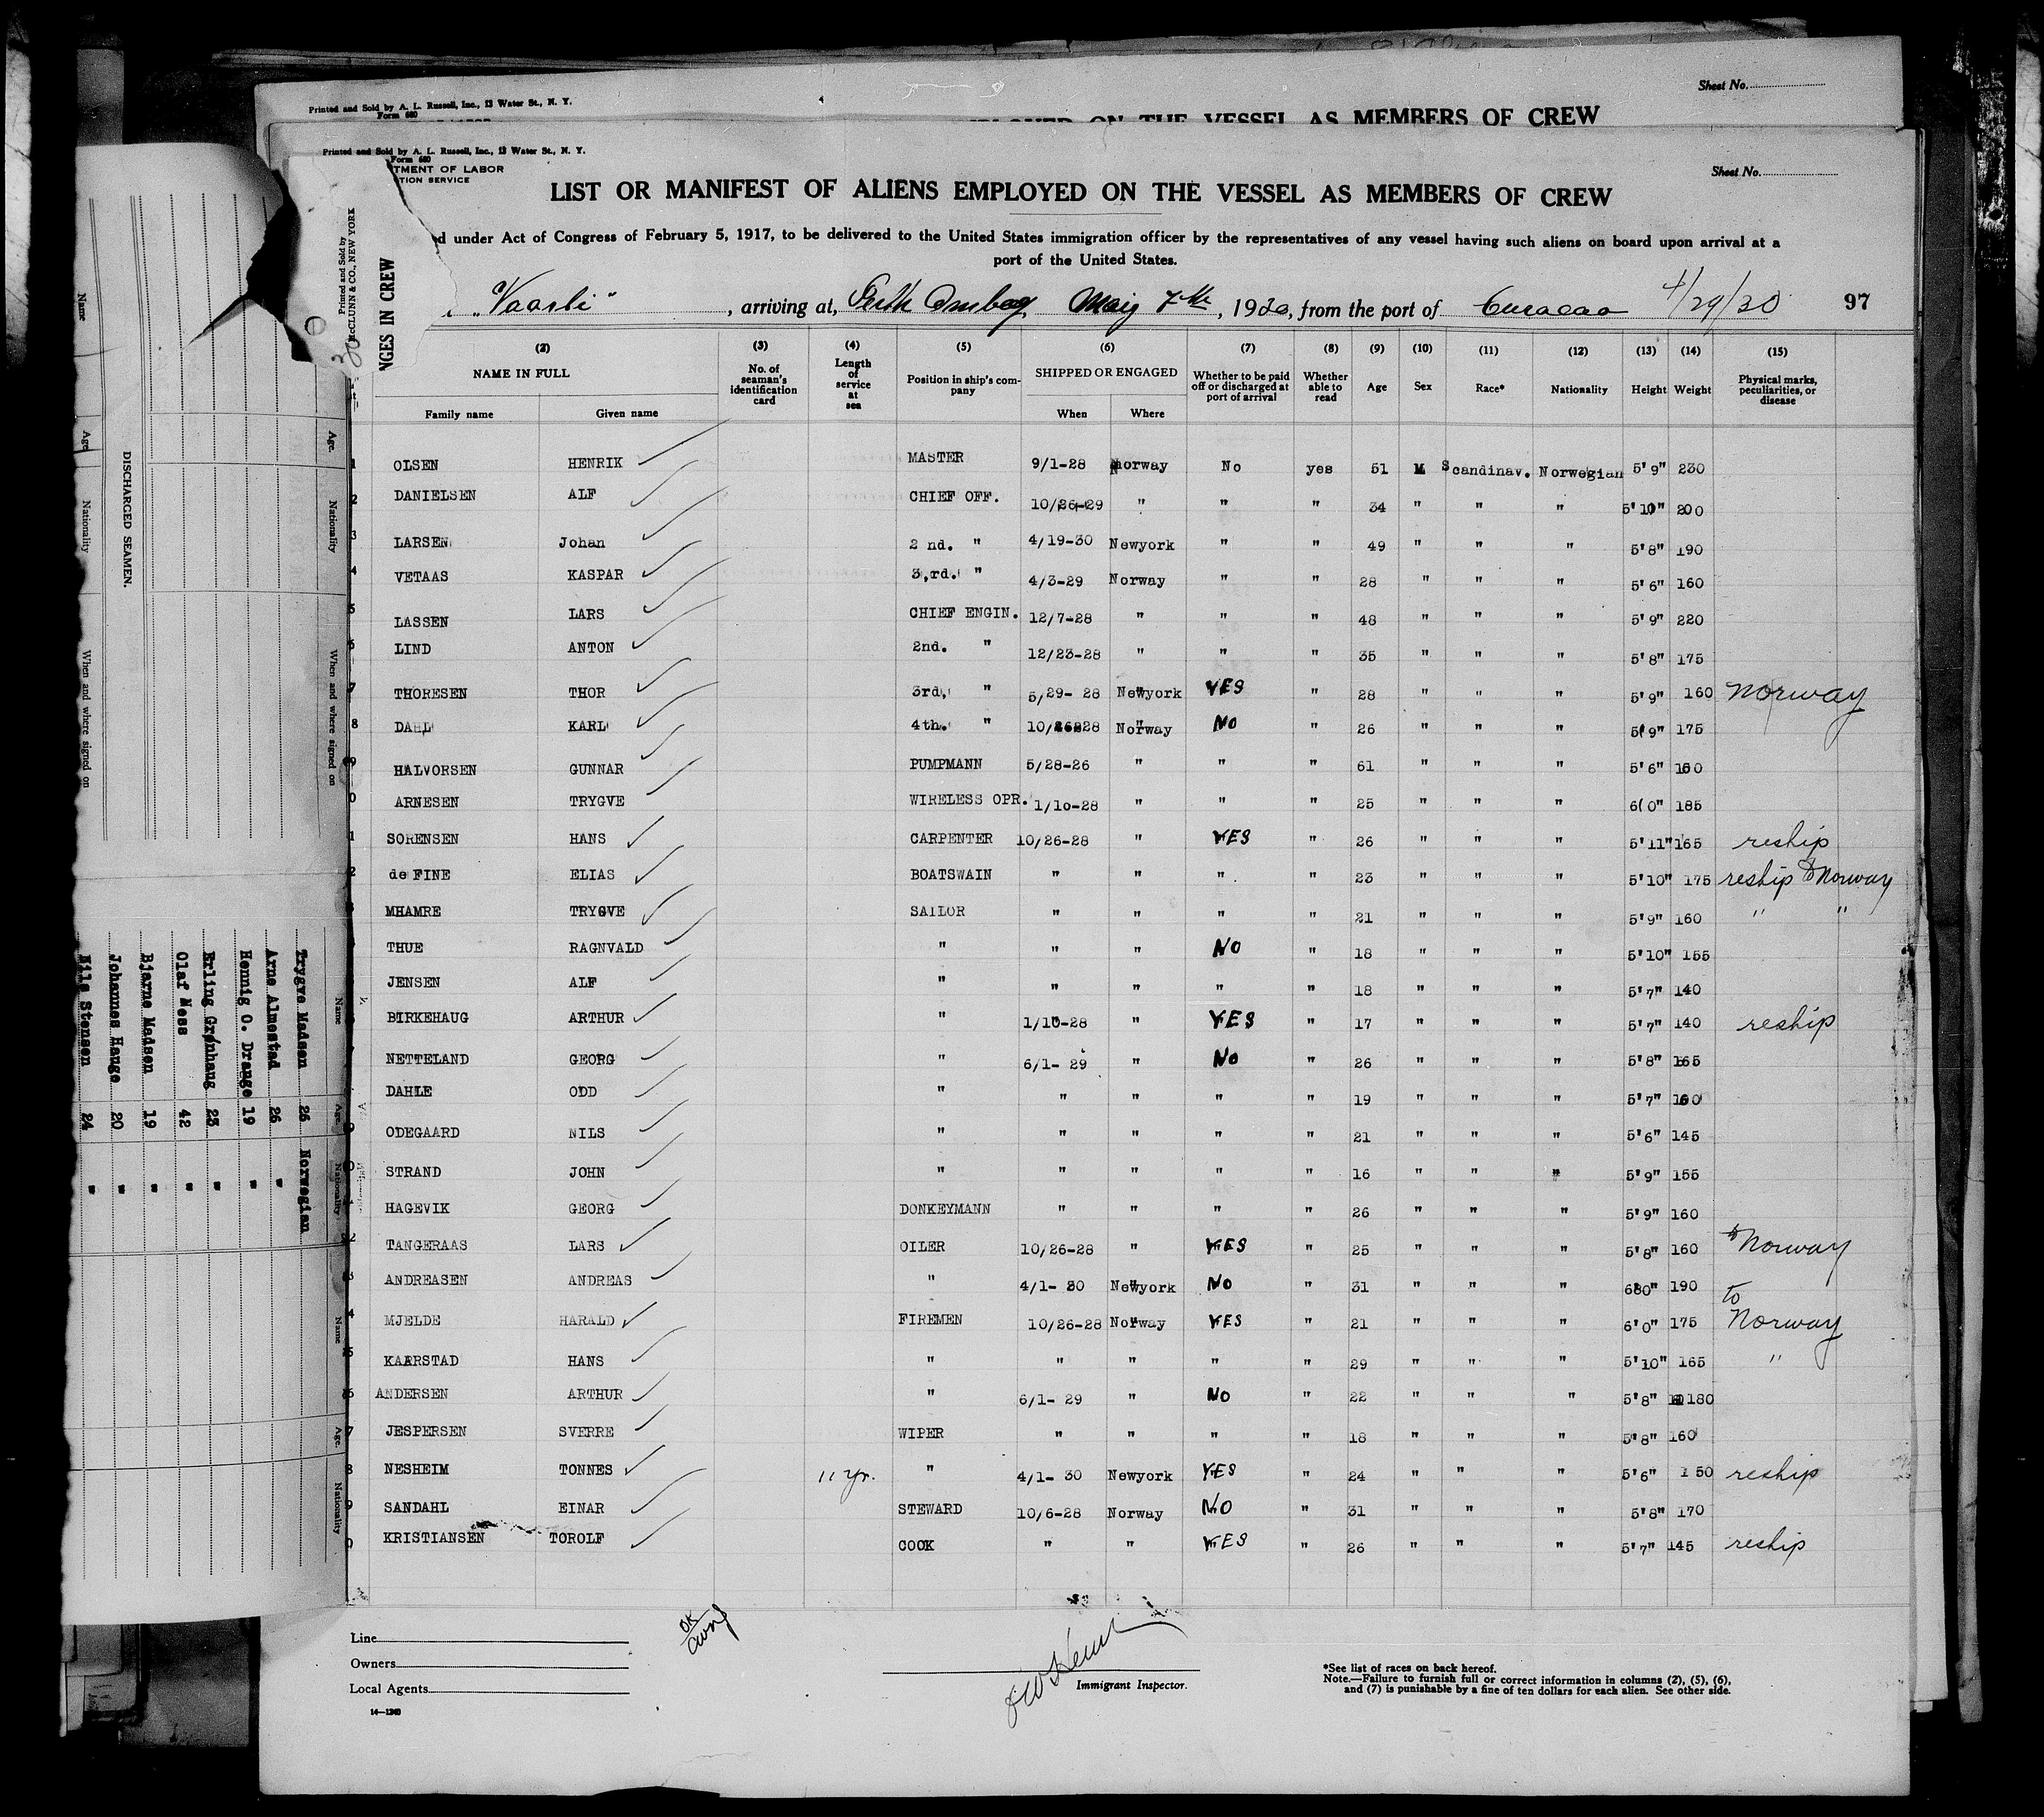 Printed and Sold by A. L. Russell, Inc., 13 Water St., N. Y.
Form 680
Sheet No.
ON THE VESSEL AS MEMBERS OF CREW
Printed and Sold by A. L. Russell, Inc., 13 Water St., N. Y.
Form 680
TMENT OF LABOR
TION SERVICE
Sheet No.
LIST OR MANIFEST OF ALIENS EMPLOYED ON THE VESSEL AS MEMBERS OF CREW
ed under Act of Congress of February 5, 1917, to be delivered to the United States immigration officer by the representatives of any vessel having such aliens on board upon arrival at a
port of the United States.
"Vaarli", arriving at, Perth Amboy May 7th, 1930, from the port of Curacao 4/29/30 97
(2) (3) (4) (5) (6) (7) (8) (9) (10) (11) (12) (13) (14) (15)
NAME IN FULL No. of seaman's identification card Length of service at sea Position in ship's company SHIPPED OR ENGAGED Whether to be paid off or discharged at port of arrival Whether able to read Age Sex Race* Nationality Height Weight Physical marks, peculiarities, or disease
Family name Given name When Where
1 OLSEN HENRIK MASTER 9/1-28 Norway No yes 51 M Scandinav. Norwegian 5'9" 230
2 DANIELSEN ALF CHIEF OFF. 10/26-29 " " " 34 " " " 5'10" 200
3 LARSEN Johan 2 nd. " 4/19-30 Newyork " " 49 " " " 5'8" 190
4 VETAAS KASPAR 3,rd. " 4/3-29 Norway " " 28 " " " 5'6" 160
5 LASSEN LARS CHIEF ENGIN. 12/7-28 " " " 48 " " " 5'9" 220
6 LIND ANTON 2nd. " 12/23-28 " " " 35 " " " 5'8" 175
7 THORESEN THOR 3rd. " 5/29- 28 Newyork YES " 28 " " " 5'9" 160 Norway
8 DAHL KARL 4th. " 10/26-28 Norway NO " 26 " " " 5'9" 175
9 HALVORSEN GUNNAR PUMPMANN 5/28-26 " " " 61 " " " 5'6" 160
0 ARNESEN TRYGVE WIRELESS OPR. 1/10-28 " " " 25 " " " 6(0" 185
1 SORENSEN HANS CARPENTER 10/26-28 " YES " 26 " " " 5'11" 165 reship
2 de FINE ELIAS BOATSWAIN " " " " 23 " " " 5'10" 175 reship to Norway
MHAMRE TRYGVE SAILOR " " " " 21 " " " 5'9" 160 " "
THUE RAGNVALD " " " NO " 18 " " " 5'10" 155
JENSEN ALF " " " " " 18 " " " 5'7" 140
BIRKEHAUG ARTHUR " 1/10-28 " YES " 17 " " " 5'7" 140 reship
NETTELAND GEORG " 6/1- 29 " NO " 26 " " " 5'8" 165
DAHLE ODD " " " " " 19 " " " 5'7" 160
9 ODEGAARD NILS " " " " " 21 " " " 5'6" 145
0 STRAND JOHN " " " " " 16 " " " 5'9" 155
HAGEVIK GEORG DONKEYMANN " " " " 26 " " " 5'9" 160
2 TANGERAAS LARS OILER 10/26-28 " YES " 25 " " " 5'8" 160 to Norway
3 ANDREASEN ANDREAS " 4/1- 30 Newyork NO " 31 " " " 6'0" 190
4 MJELDE HARALD FIREMEN 10/26-28 Norway YES " 21 " " " 6'0" 175 to Norway
5 KAARSTAD HANS " " " " " 29 " " " 5'10" 165 "
6 ANDERSEN ARTHUR " 6/1- 29 " NO " 22 " " " 5'8" 180
7 JESPERSEN SVERRE WIPER " " " " 18 " " " 5'8" 160
8 NESHEIM TONNES 11 yr. " 4/1- 30 Newyork YES " 24 " " " 5'6" 150 reship
9 SANDAHL EINAR STEWARD 10/6-28 Norway NO " 31 " " " 5'8" 170
0 KRISTIANSEN TOROLF COOK " " YES " 26 " " " 5'7" 145 reship
Line
Owners
Local Agents
14—1240
OK
Immigrant Inspector.
*See list of races on back hereof.
Note.—Failure to furnish full or correct information in columns (2), (5), (6),
and (7) is punishable by a fine of ten dollars for each alien. See other side.
Printed and Sold by
McCLUNN & CO., NEW YORK
NGES IN CREW
Name Age. Nationality When and where signed on
DISCHARGED SEAMEN.
Age. Nationality When and where signed on
Name Age. Nationality
Trygve Madsen 25 Norwegian
Arne Almestad 26 "
Hennig O. Drange 19 "
Erling Grønhaug 23 "
Olaf Ness 42 "
Bjarne Madsen 19 "
Johannes Hauge 20 "
Nils Stensen 24 "
Name Age. Nationality